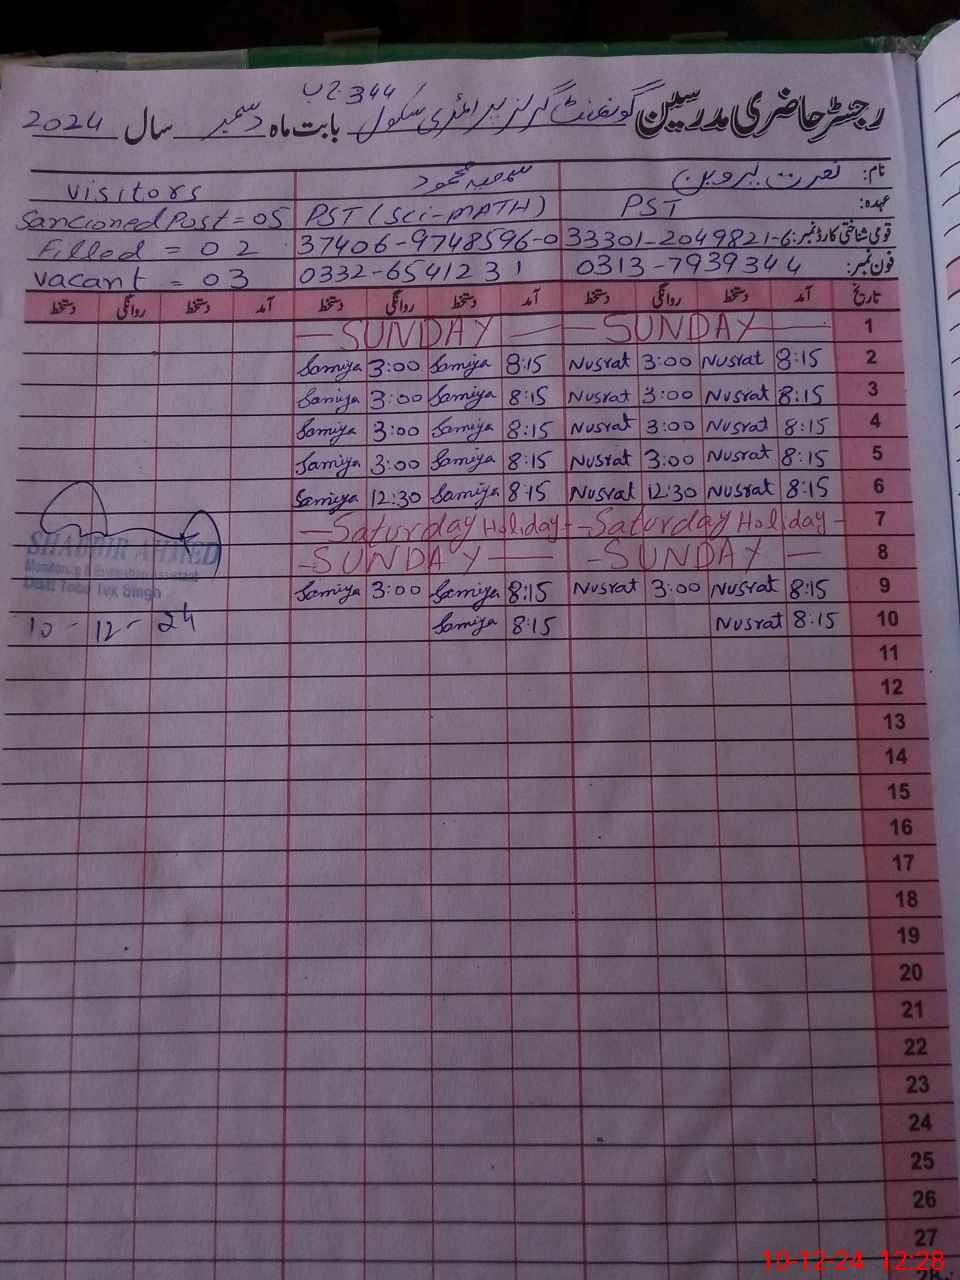 رجسٹر حاضری مدرسین گورنمنٹ گرلز پرائمری سکول 344 بابت ماہ دسمبر سال 2024
نام: نصرت پروین سمعیہ محمود Visitors
عہدہ: PST PST (Sci-MATH) Sancioned Post = 05
قومی شناختی کارڈ نمبر: 33301-2049821-6 37406-9748596-0 Filled = 02
فون نمبر: 0313-7939344 0332-6541231 Vacant = 03
تاریخ آمد دستخط روانگی دستخط آمد دستخط روانگی دستخط آمد دستخط روانگی دستخط
1 SUNDAY SUNDAY
2 8:15 Nusrat 3:00 Nusrat 8:15 Samiya 3:00 Samiya
3 8:15 Nusrat 3:00 Nusrat 8:15 Samiya 3:00 Samiya
4 8:15 Nusrat 3:00 Nusrat 8:15 Samiya 3:00 Samiya
5 8:15 Nusrat 3:00 Nusrat 8:15 Samiya 3:00 Samiya
6 8:15 Nusrat 12:30 Nusrat 8:15 Samiya 12:30 Samiya
7 Saturday Holiday Saturday Holiday
8 SUNDAY SUNDAY
SHABBIR AHMED
Monitoring & Evaluation Assistant
Toba Tek Singh
9 8:15 Nusrat 3:00 Nusrat 8:15 Samiya 3:00 Samiya
10 8:15 Nusrat 8:15 Samiya 10-12-24
11
12
13
14
15
16
17
18
19
20
21
22
23
24
25
26
27
10-12-24 12:28